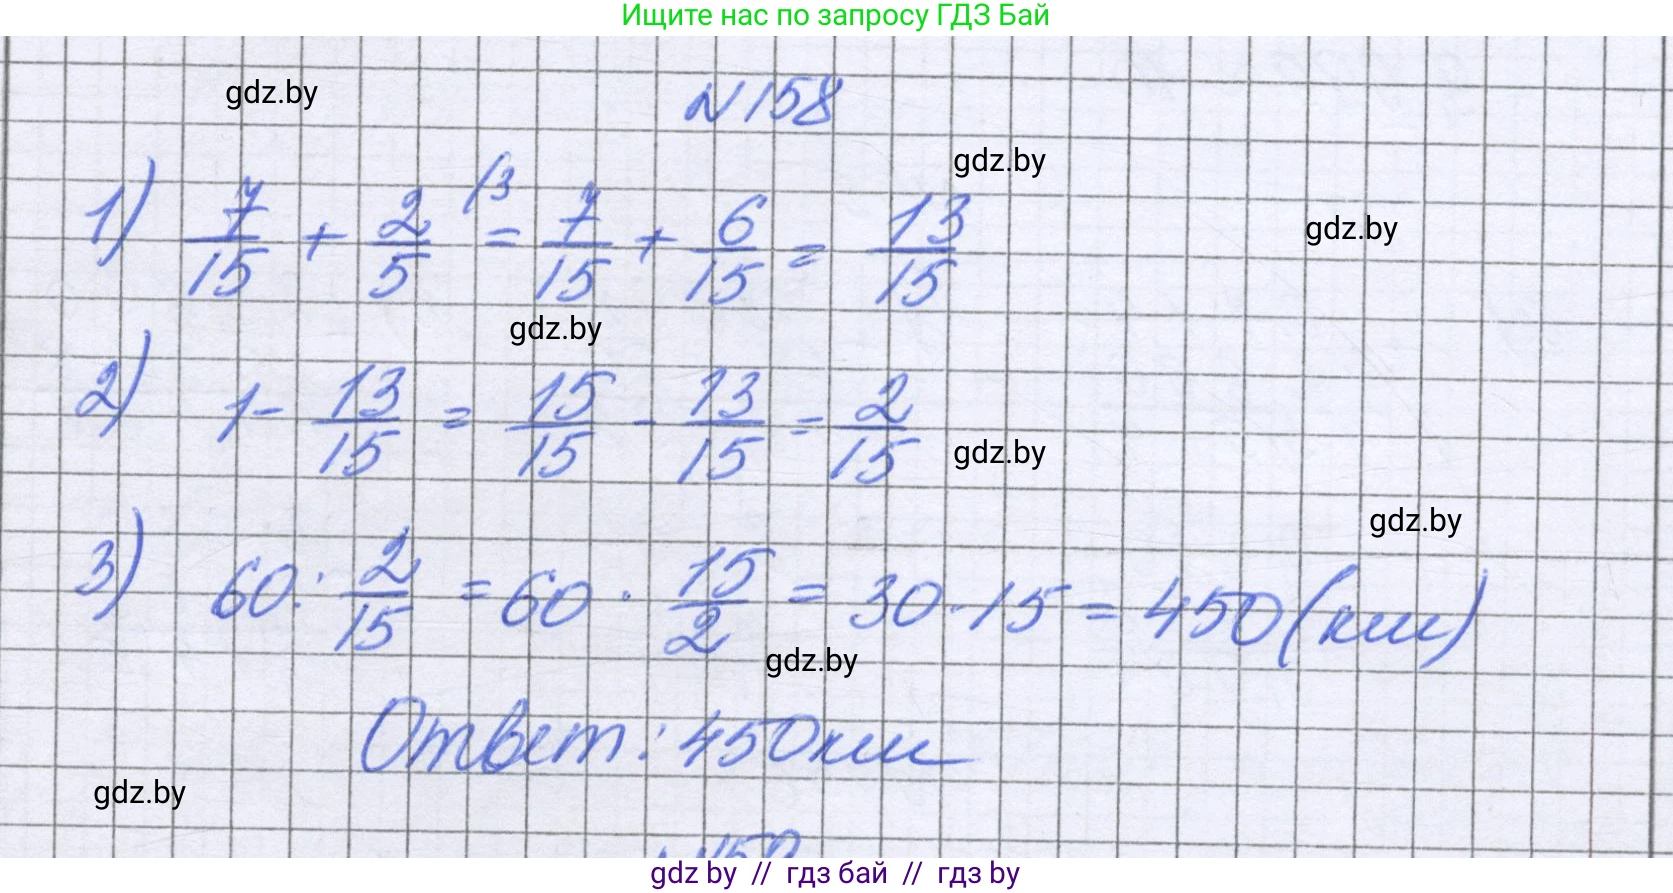 Ищите нас по запросу ГДЗ Бай
gdz.by
N158
gdz.by
1) 7/15 + 2/5 /3 = 7/15 + 6/15 = 13/15
gdz.by
gdz.by
2) 1 - 13/15 = 15/15 - 13/15 = 2/15
gdz.by
gdz.by
3) 60 : 2/15 = 60 · 15/2 = 30 · 15 = 450 (км)
gdz.by
Ответ: 450 км
gdz.by
gdz by // гдз бай // гдз by